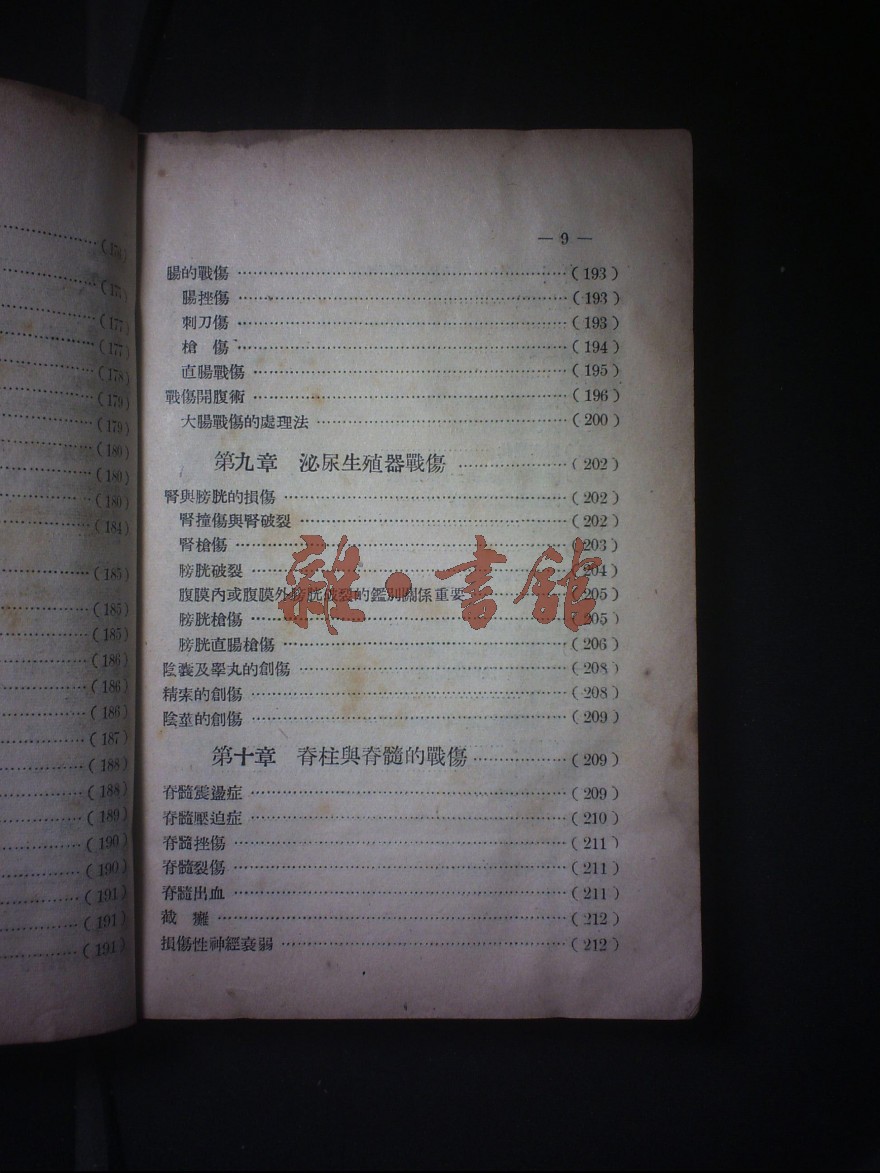 (177)
(177)
(178)
(179)
(179)
(180)
(180)
(180)
(184)
(185)
(185)
(185)
(186)
(186)
(186)
(187)
(188)
(188)
(189)
(190)
(190)
(191)
(191)
(191)
— 9 —
腸的戰傷 ……………(193)
腸挫傷 ……………(193)
刺刀傷 ……………(193)
槍　傷 ……………(194)
直腸戰傷 ……………(195)
戰傷開腹術 ……………(196)
大腸戰傷的處理法 ……………(200)
第九章　泌尿生殖器戰傷 ……………(202)
腎與膀胱的損傷 ……………(202)
腎撞傷與腎破裂 ……………(202)
腎槍傷 ……………(203)
膀胱破裂 ……………(204)
腹膜內或腹膜外膀胱破裂的鑑別關係重要 ……………(205)
膀胱槍傷 ……………(205)
膀胱直腸槍傷 ……………(206)
陰囊及睪丸的創傷 ……………(208)
精索的創傷 ……………(208)
陰莖的創傷 ……………(209)
第十章　脊柱與脊髓的戰傷 ……………(209)
脊髓震盪症 ……………(209)
脊髓壓迫症 ……………(210)
脊髓挫傷 ……………(211)
脊髓裂傷 ……………(211)
脊髓出血 ……………(211)
截　癱 ……………(212)
損傷性神經衰弱 ……………(212)
雜·書館